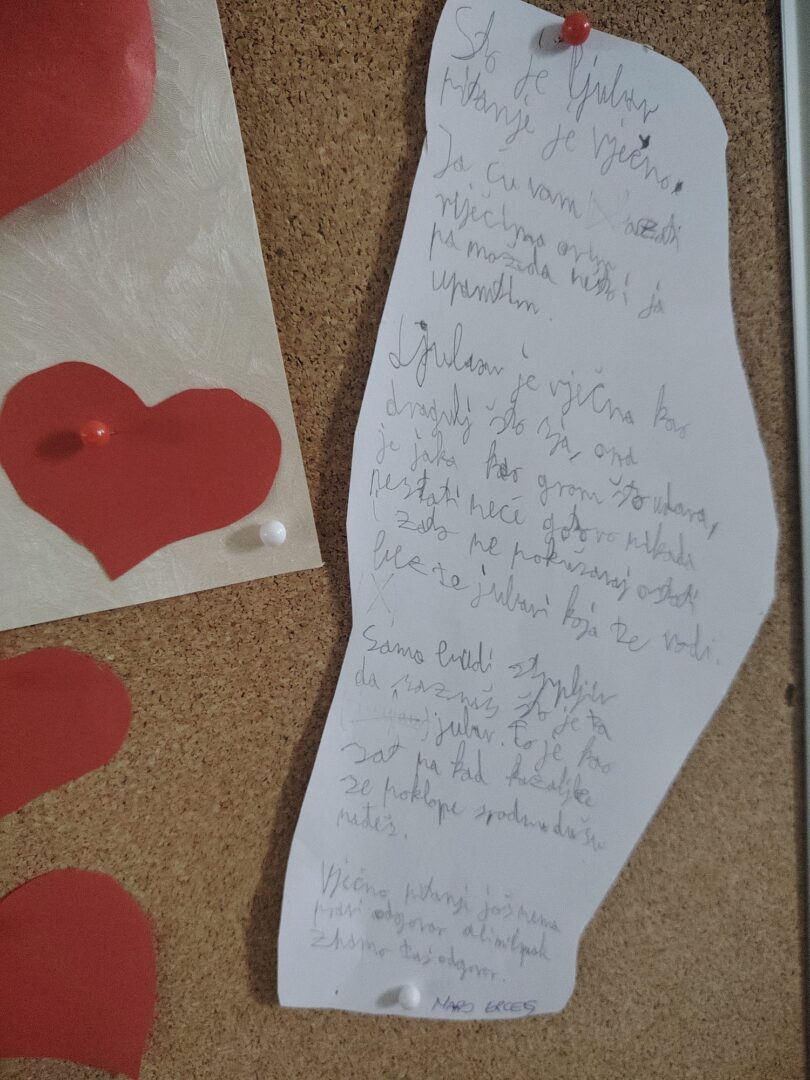 Što je ljubav
pitanje je vječno.
Ja ću vam kazati
riječima ovim
pa možda nešto i ja
upamtim.
Ljubav je vječna kao
dragulj što sja, ona
je jaka kao grom što udara,
nestati neće gotovo nikada
zato ne pokušavaj ostati
bez te ljubavi koja te vodi.
X
Samo budi strpljiv
da saznaš što je ta
ljubav. to je kao
sat pa kad kazaljke
se poklope srodnu dušu
nađeš.
Vječno pitanje još nema
pravi odgovor ali mi ipak
znamo taj odgovor.